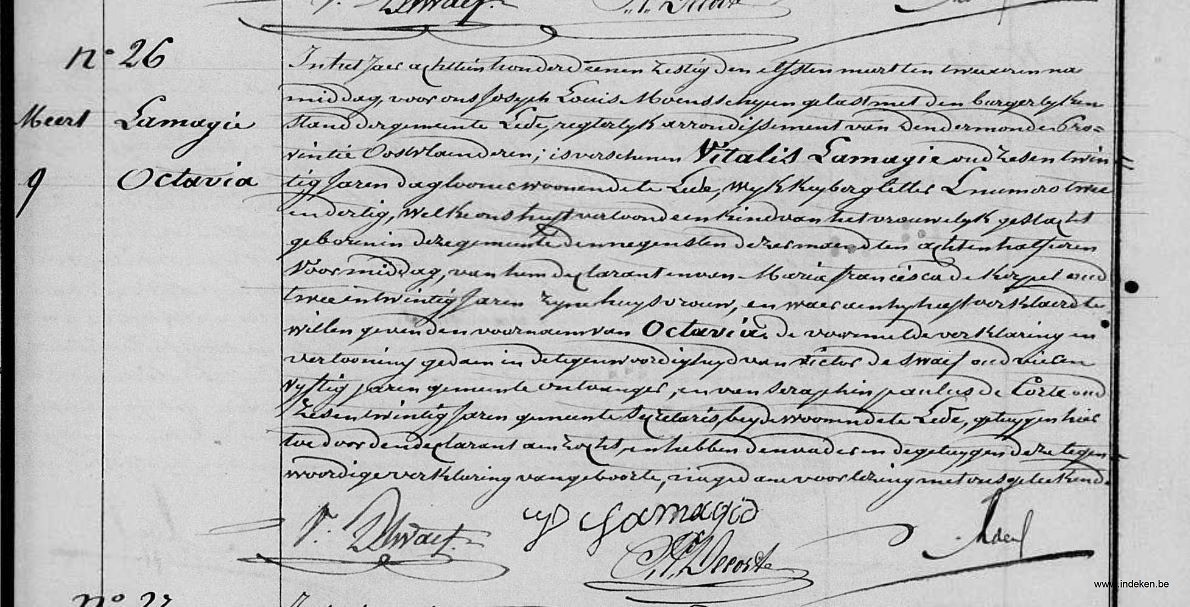 n° 26
Meert Lamagie
9 Octavia
In het Jaer achttien honderd eenen zestig den elfsten meert ten twee uren na
middag, voor ons Joseph Louis Moens schepen gelast met den burgerlyken
stand der gemeente Lede, regterlyk arrondissement van Dendermonde Pro=
vintie Oostvlaenderen; is verschenen Vitalis Lamagie oud zesentwin
tig Jaren dagloonner woonende te Lede, Wyk Keyberg letter L numero twee
en dertig, Welke ons heeft vertoond een kind van het vrouwelyk geslacht
geboren in deze gemeente den negensten dezer maend ten acht en half uren
Voormiddag, van hem declarant en van Maria francisca de Keyzel oud
twee en twintig Jaren zyne huysvrouw, en waer aen hy heeft verklaerd te
willen geven den voornaem van Octavia. de voormelde verklaring en
vertooning gedaen in de tegenwoordigheyd van victor de Swaef oud
vyftig jaren gemeente ontvanger, en van Seraphin paulus de Corte oud
zesentwintig Jaren gemeente secretaris, beyde woonende te Lede, getuygen hier
toe door den declarant aenzocht, en hebben den vader en de getuygen deze tegen
woordige verklaring van geboorte, na gedane voorlezing met ons geteekend.
V. DeSwaef
V Lamagie
n° 27
www.indeken.be